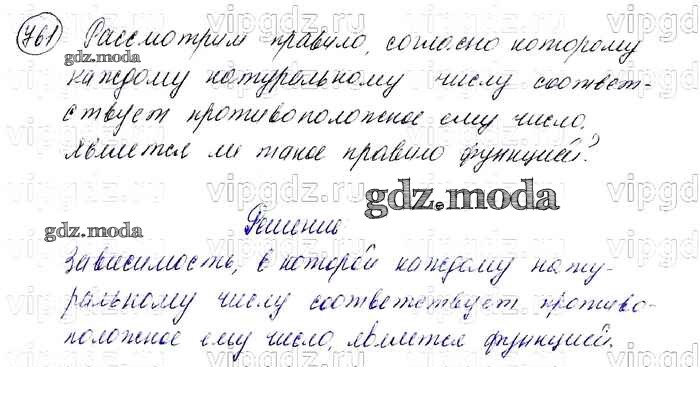 761 Рассмотрим правило, согласно которому
gdz.moda
каждому натуральному числу соответ-
ствует противоположное ему число.
Является ли такое правило функцией?
gdz.moda
Решение
gdz.moda
Зависимость, в которой каждому нату-
ральному числу соответствует противо-
положное ему число, является функцией.